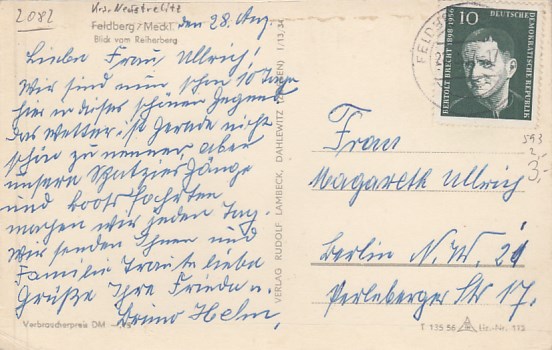 2082
Krs. Neustrelitz
Feldberg / Meckl.
Blick vom Reiherberg
den 28. Aug.
Liebe Frau Ullrich!
Wir sind nun schon 10 Tage
hier in dieser schönen Gegend
Das Wetter ist gerade nicht
schön zu nennen, aber
unsere Spatziergänge
und Bootsfahrten
machen wir jeden Tag.
Wir senden Ihnen und
Familie Traute liebe
Grüße Ihre Frieda u.
Bruno Helm,
Verbraucherpreis DM
VERLAG RUDOLF LAMBECK, DAHLEWITZ (ZOSSEN) 1/13, 34
FELD
10
DEUTSCHE
DEMOKRATISCHE REPUBLIK
BERTOLT BRECHT 1898-1956
593
3,-
Frau
Magareth Ullrich
Berlin N.W. 21
Perleberger Str 17.
T 135 56 Liz.-Nr. 113